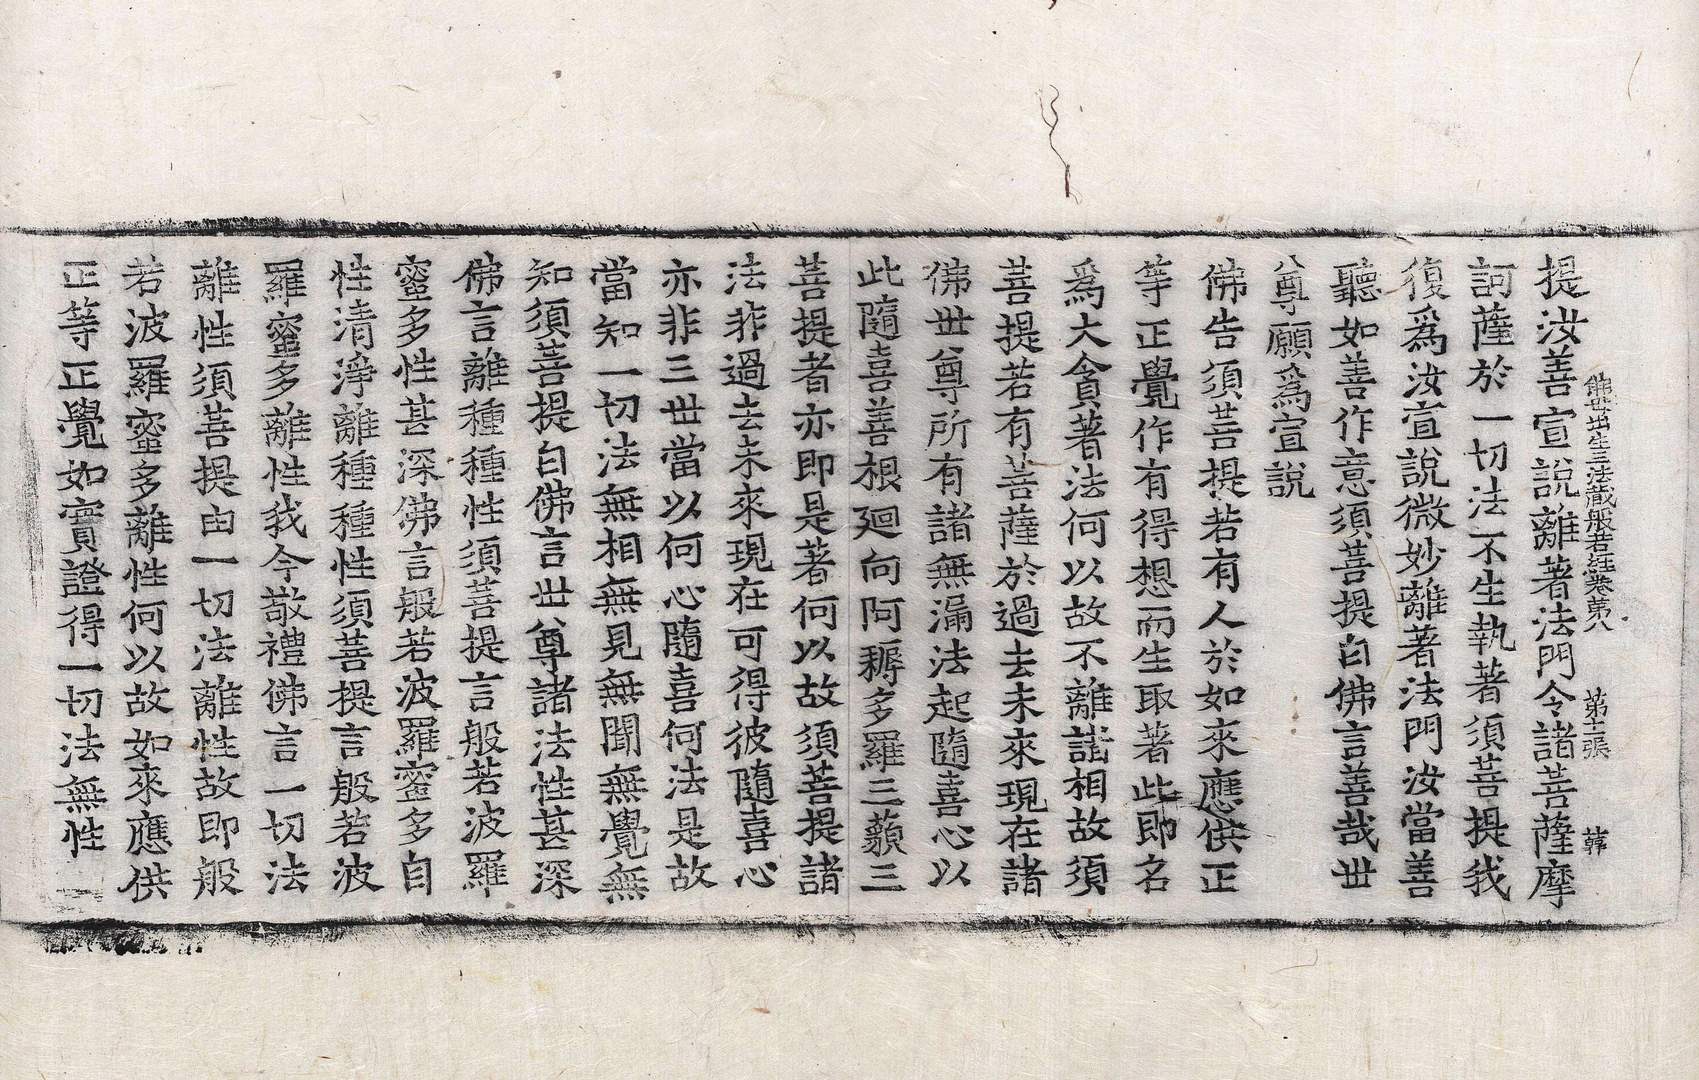 佛母出生三法藏般若經卷第八　第十二張　韓
提汝善宣說離著法門令諸菩薩摩
訶薩於一切法不生執著須菩提我
復爲汝宣說微妙離著法門汝當善
聽如善作意須菩提白佛言善哉世
尊願爲宣說
佛告須菩提若有人於如來應供正
等正覺作有得想而生取著此即名
爲大貪著法何以故不離諸相故須
菩提若有菩薩於過去未來現在諸
佛世尊所有諸無漏法起隨喜心以
此隨喜善根廻向阿耨多羅三藐三
菩提者亦即是著何以故須菩提諸
法非過去未來現在可得彼隨喜心
亦非三世當以何心隨喜何法是故
當知一切法無相無見無聞無覺無
知須菩提白佛言世尊諸法性甚深
佛言離種種性須菩提言般若波羅
蜜多性甚深佛言般若波羅蜜多自
性清淨離種種性須菩提言般若波
羅蜜多離性我今敬禮佛言一切法
離性須菩提由一切法離性故即般
若波羅蜜多離性何以故如來應供
正等正覺如實證得一切法無性